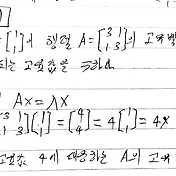 = [1 1]의 행렬 A = [3 1 1 3]의 고유벡
되는 고유값을 구하라
Ax = λx
[3 1 1 3][1 1] = [4 4] = 4[1 1] = 4x
고유값 4에 대응하는 A의 고유